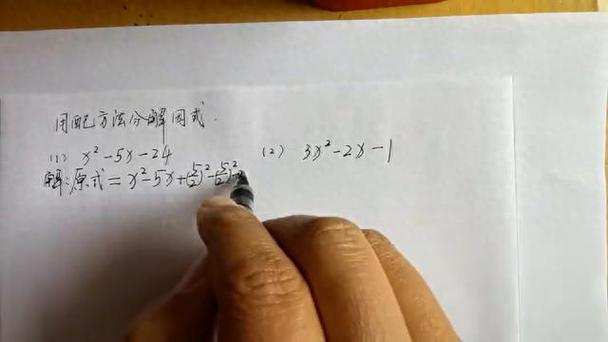 用配方法分解因式.
(1) x²-5x-24 (2) 3x²-2x-1
解:原式=x²-5x+(5/2)²-(5/2)²